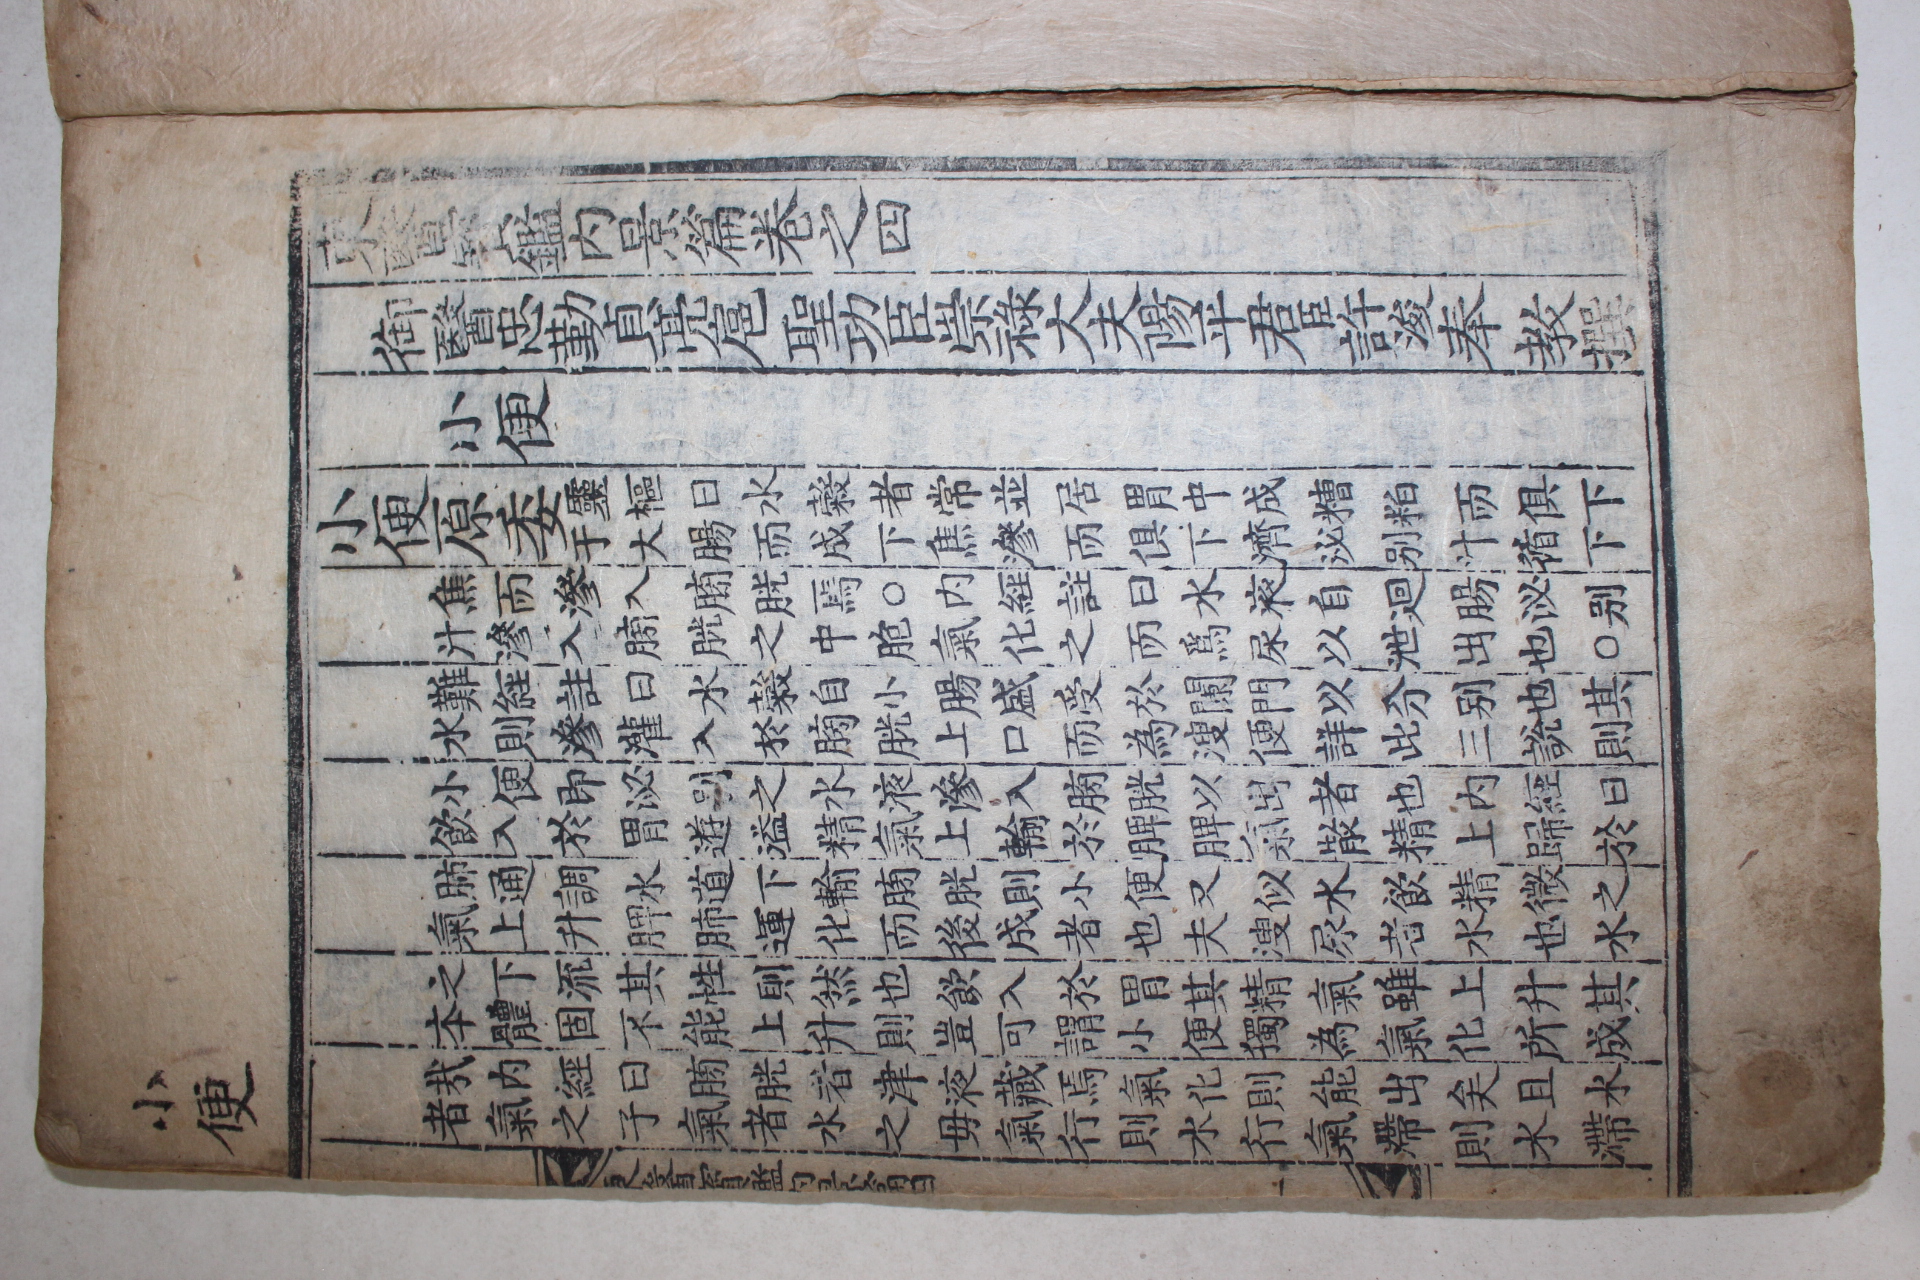 東醫寶鑑內景篇卷之四
御醫忠勤貞亮扈聖功臣崇祿大夫陽平君臣許浚奉教撰
小便
小便原委
靈樞曰水穀者常並居胃中成糟粕而俱下
于大腸而成下焦滲而俱下濟泌別汁循下
焦而滲入膀胱焉○內經註曰水液自迴腸泌別
汁滲入膀胱之中胞氣化之而爲尿以泄出也○
難經註曰水穀自小腸盛受於闌門以分別也其
水則滲灌入於膀胱上口而為溲便詳此三說則
小便即泌別之水液滲入膀胱以出者也內經曰
飮入於胃遊溢精氣上輸於脾脾氣散精上歸於
肺通調水道下輸膀胱則小便又似水飮精微之
氣上升脾肺運化而後成者也夫溲尿者水也水
之下流其性則然也飮入於胃其精氣雖上升其
本體固不能上升則豈可謂小便獨為氣化所成
㢤內經曰膀胱者津液藏焉氣化則能出矣且水
者氣之子氣者水之毋氣行則水行氣滯則水滯
小便
東醫寶鑑內景篇四
一